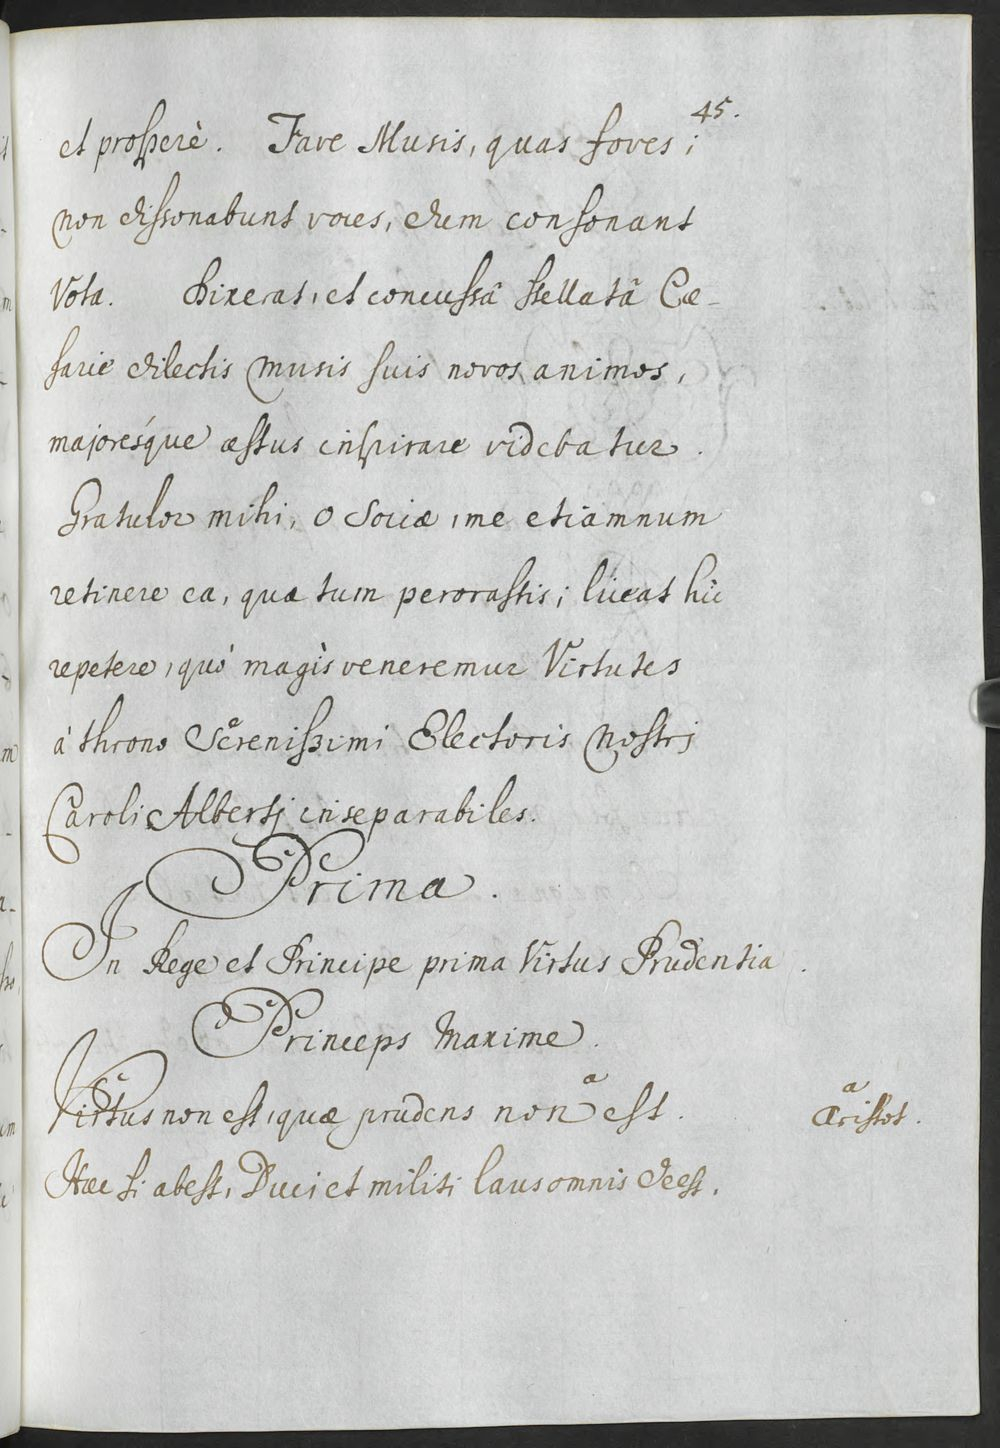 45.
et prosperè. Fave Musis, quas foves;
non dissonabunt voces, dum consonant
Vota. Dixerat, et concussâ stellatâ Cæ-
sarie dilectis Musis suis novos animos,
majoresque æstus inspirare videbatur.
Gratulor mihi, O Sociæ, me etiamnum
retinere ea, quæ tum perorastis; liceat hic
repetere, quó magìs veneremur Virtutes
á throno Serenissimi Electoris Nostrj
Caroli Albertj inseparabiles.
Prima.
In Rege et Principe prima Virtus Prudentia.
Princeps Maxime.
Virtus non est, quæ prudens non a est.
a Aristot.
Hæc si abest, Duci et militi laus omnis deest.